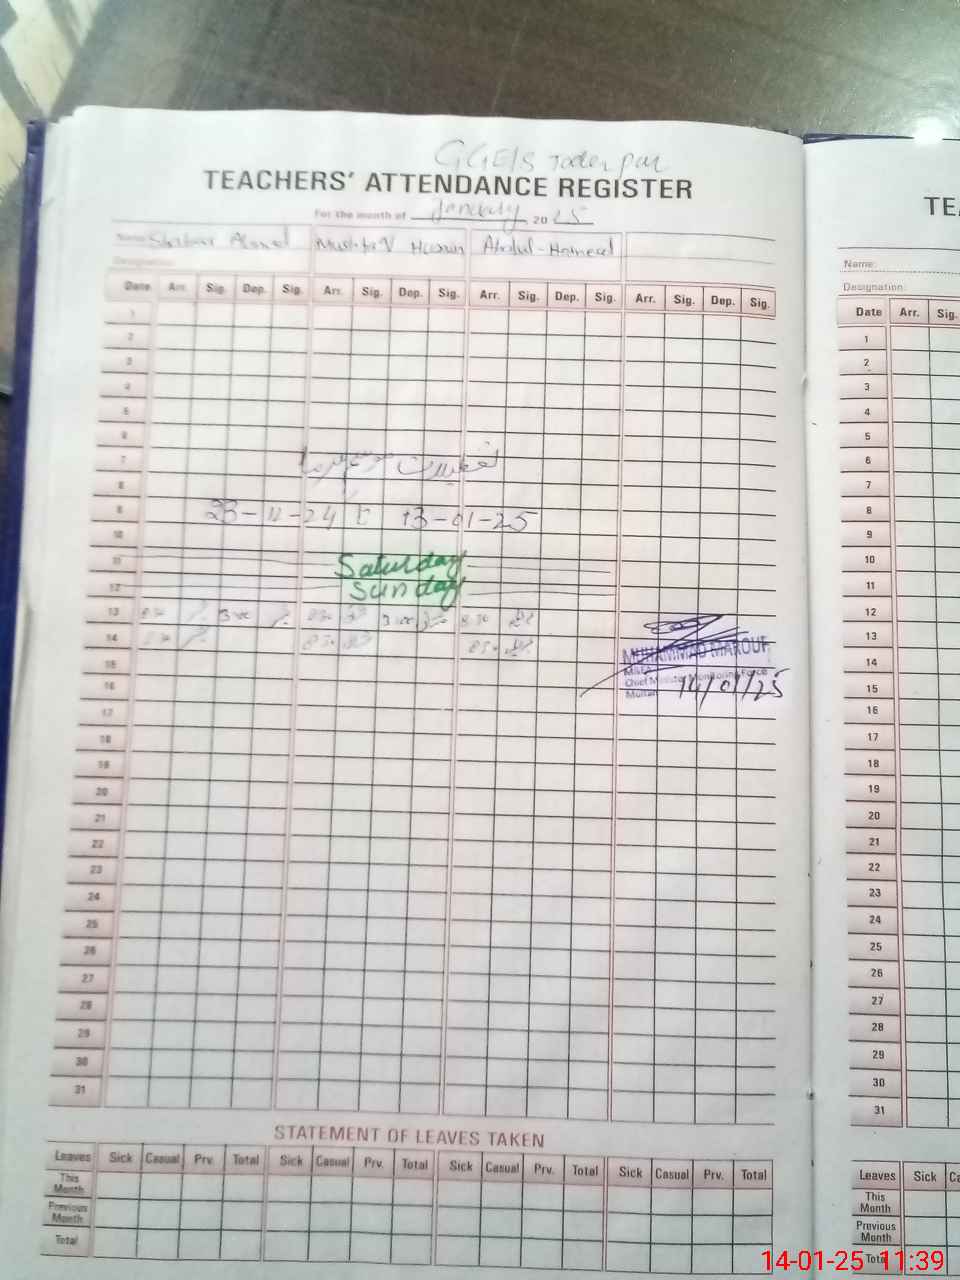 TEACHERS' ATTENDANCE REGISTER
For the month of January 2025
Name: Ahmed Hussain Abdul-Hameed
Designation:
Date Arr. Sig. Dep. Sig. Arr. Sig. Dep. Sig. Arr. Sig. Dep. Sig. Arr. Sig. Dep. Sig.
1
2
3
4
5
6
7
تعطیلات موسم سرما
8
9 23-12-24 تا 13-01-25
10
11 Saturday
12 Sunday
13 8:30 3:00 8:30 3:00 8:30
14 8:30 8:30 8:30
MUHAMMAD MAROUF
MEA
Chief Minister Monitoring Force
Multan
14/01/25
15
16
17
18
19
20
21
22
23
24
25
26
27
28
29
30
31
STATEMENT OF LEAVES TAKEN
Leaves Sick Casual Prv. Total Sick Casual Prv. Total Sick Casual Prv. Total Sick Casual Prv. Total
This Month
Previous Month
Total
TE
Name:
Designation:
Date Arr. Sig.
1
2
3
4
5
6
7
8
9
10
11
12
13
14
15
16
17
18
19
20
21
22
23
24
25
26
27
28
29
30
31
Leaves Sick
This Month
Previous Month
Total
14-01-25 11:39